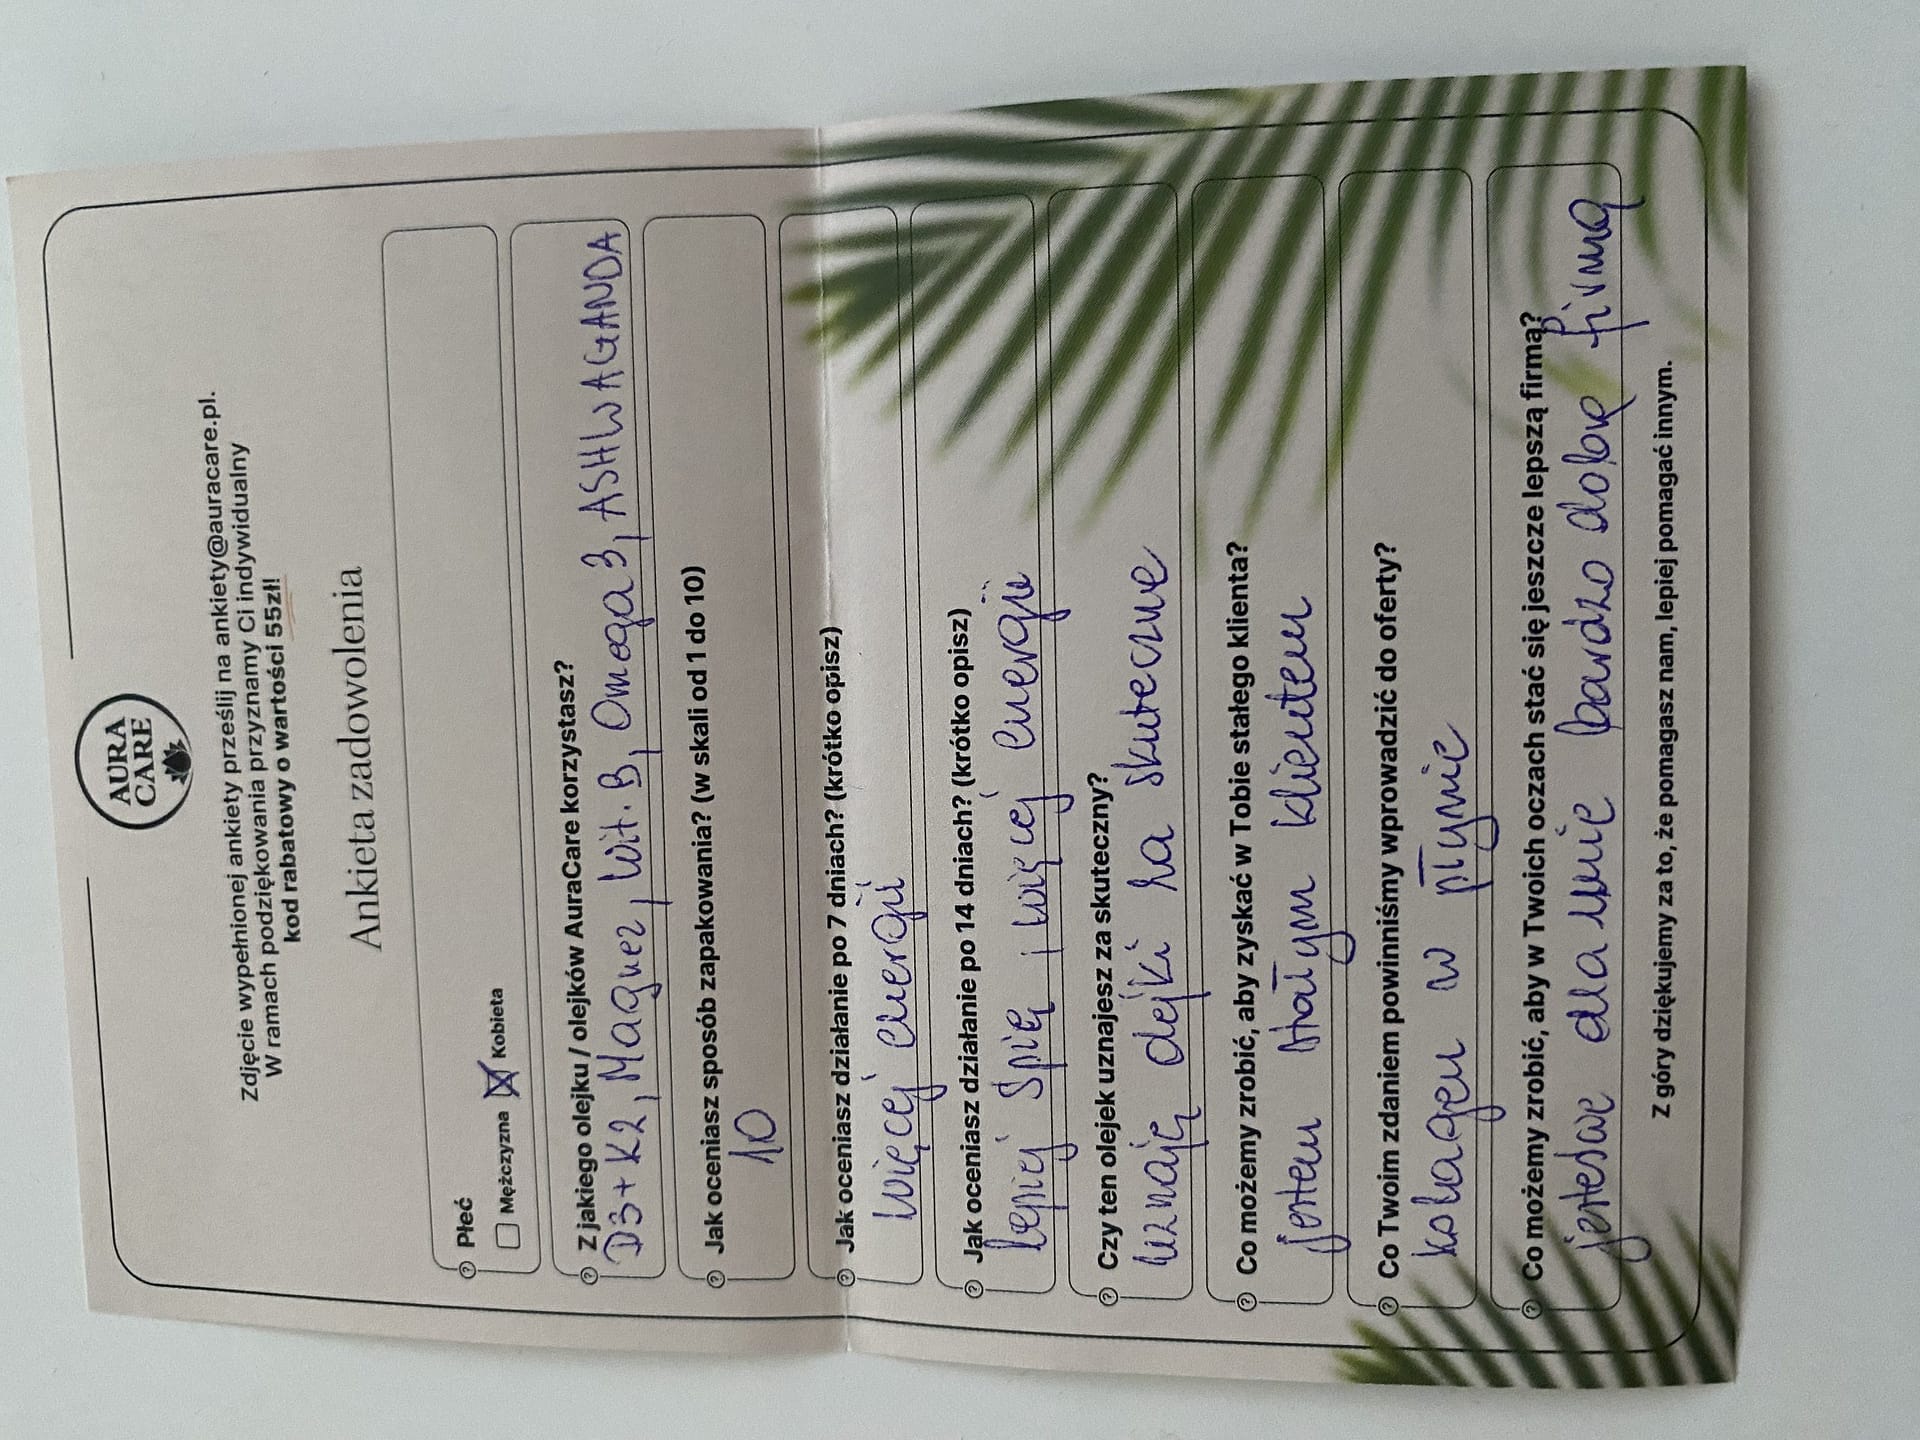 AURA
CARE
Zdjęcie wypełnionej ankiety prześlij na ankiety@auracare.pl.
W ramach podziękowania przyznamy Ci indywidualny
kod rabatowy o wartości 55zł!
Ankieta zadowolenia
Płeć
Mężczyzna Kobieta
Z jakiego olejku / olejków AuraCare korzystasz?
D3+K2, Magnez, Wit.B, Omega3, ASHWAGANDA
Jak oceniasz sposób zapakowania? (w skali od 1 do 10)
10
Jak oceniasz działanie po 7 dniach? (krótko opisz)
więcej energii
Jak oceniasz działanie po 14 dniach? (krótko opisz)
lepiej śpię, więcej energii
Czy ten olejek uznajesz za skuteczny?
uznaję olejki za skuteczne
Co możemy zrobić, aby zyskać w Tobie stałego klienta?
jestem stałym klientem
Co Twoim zdaniem powinniśmy wprowadzić do oferty?
kolagen w płynie
Co możemy zrobić, aby w Twoich oczach stać się jeszcze lepszą firmą?
jesteście dla mnie bardzo dobrą firmą
Z góry dziękujemy za to, że pomagasz nam, lepiej pomagać innym.